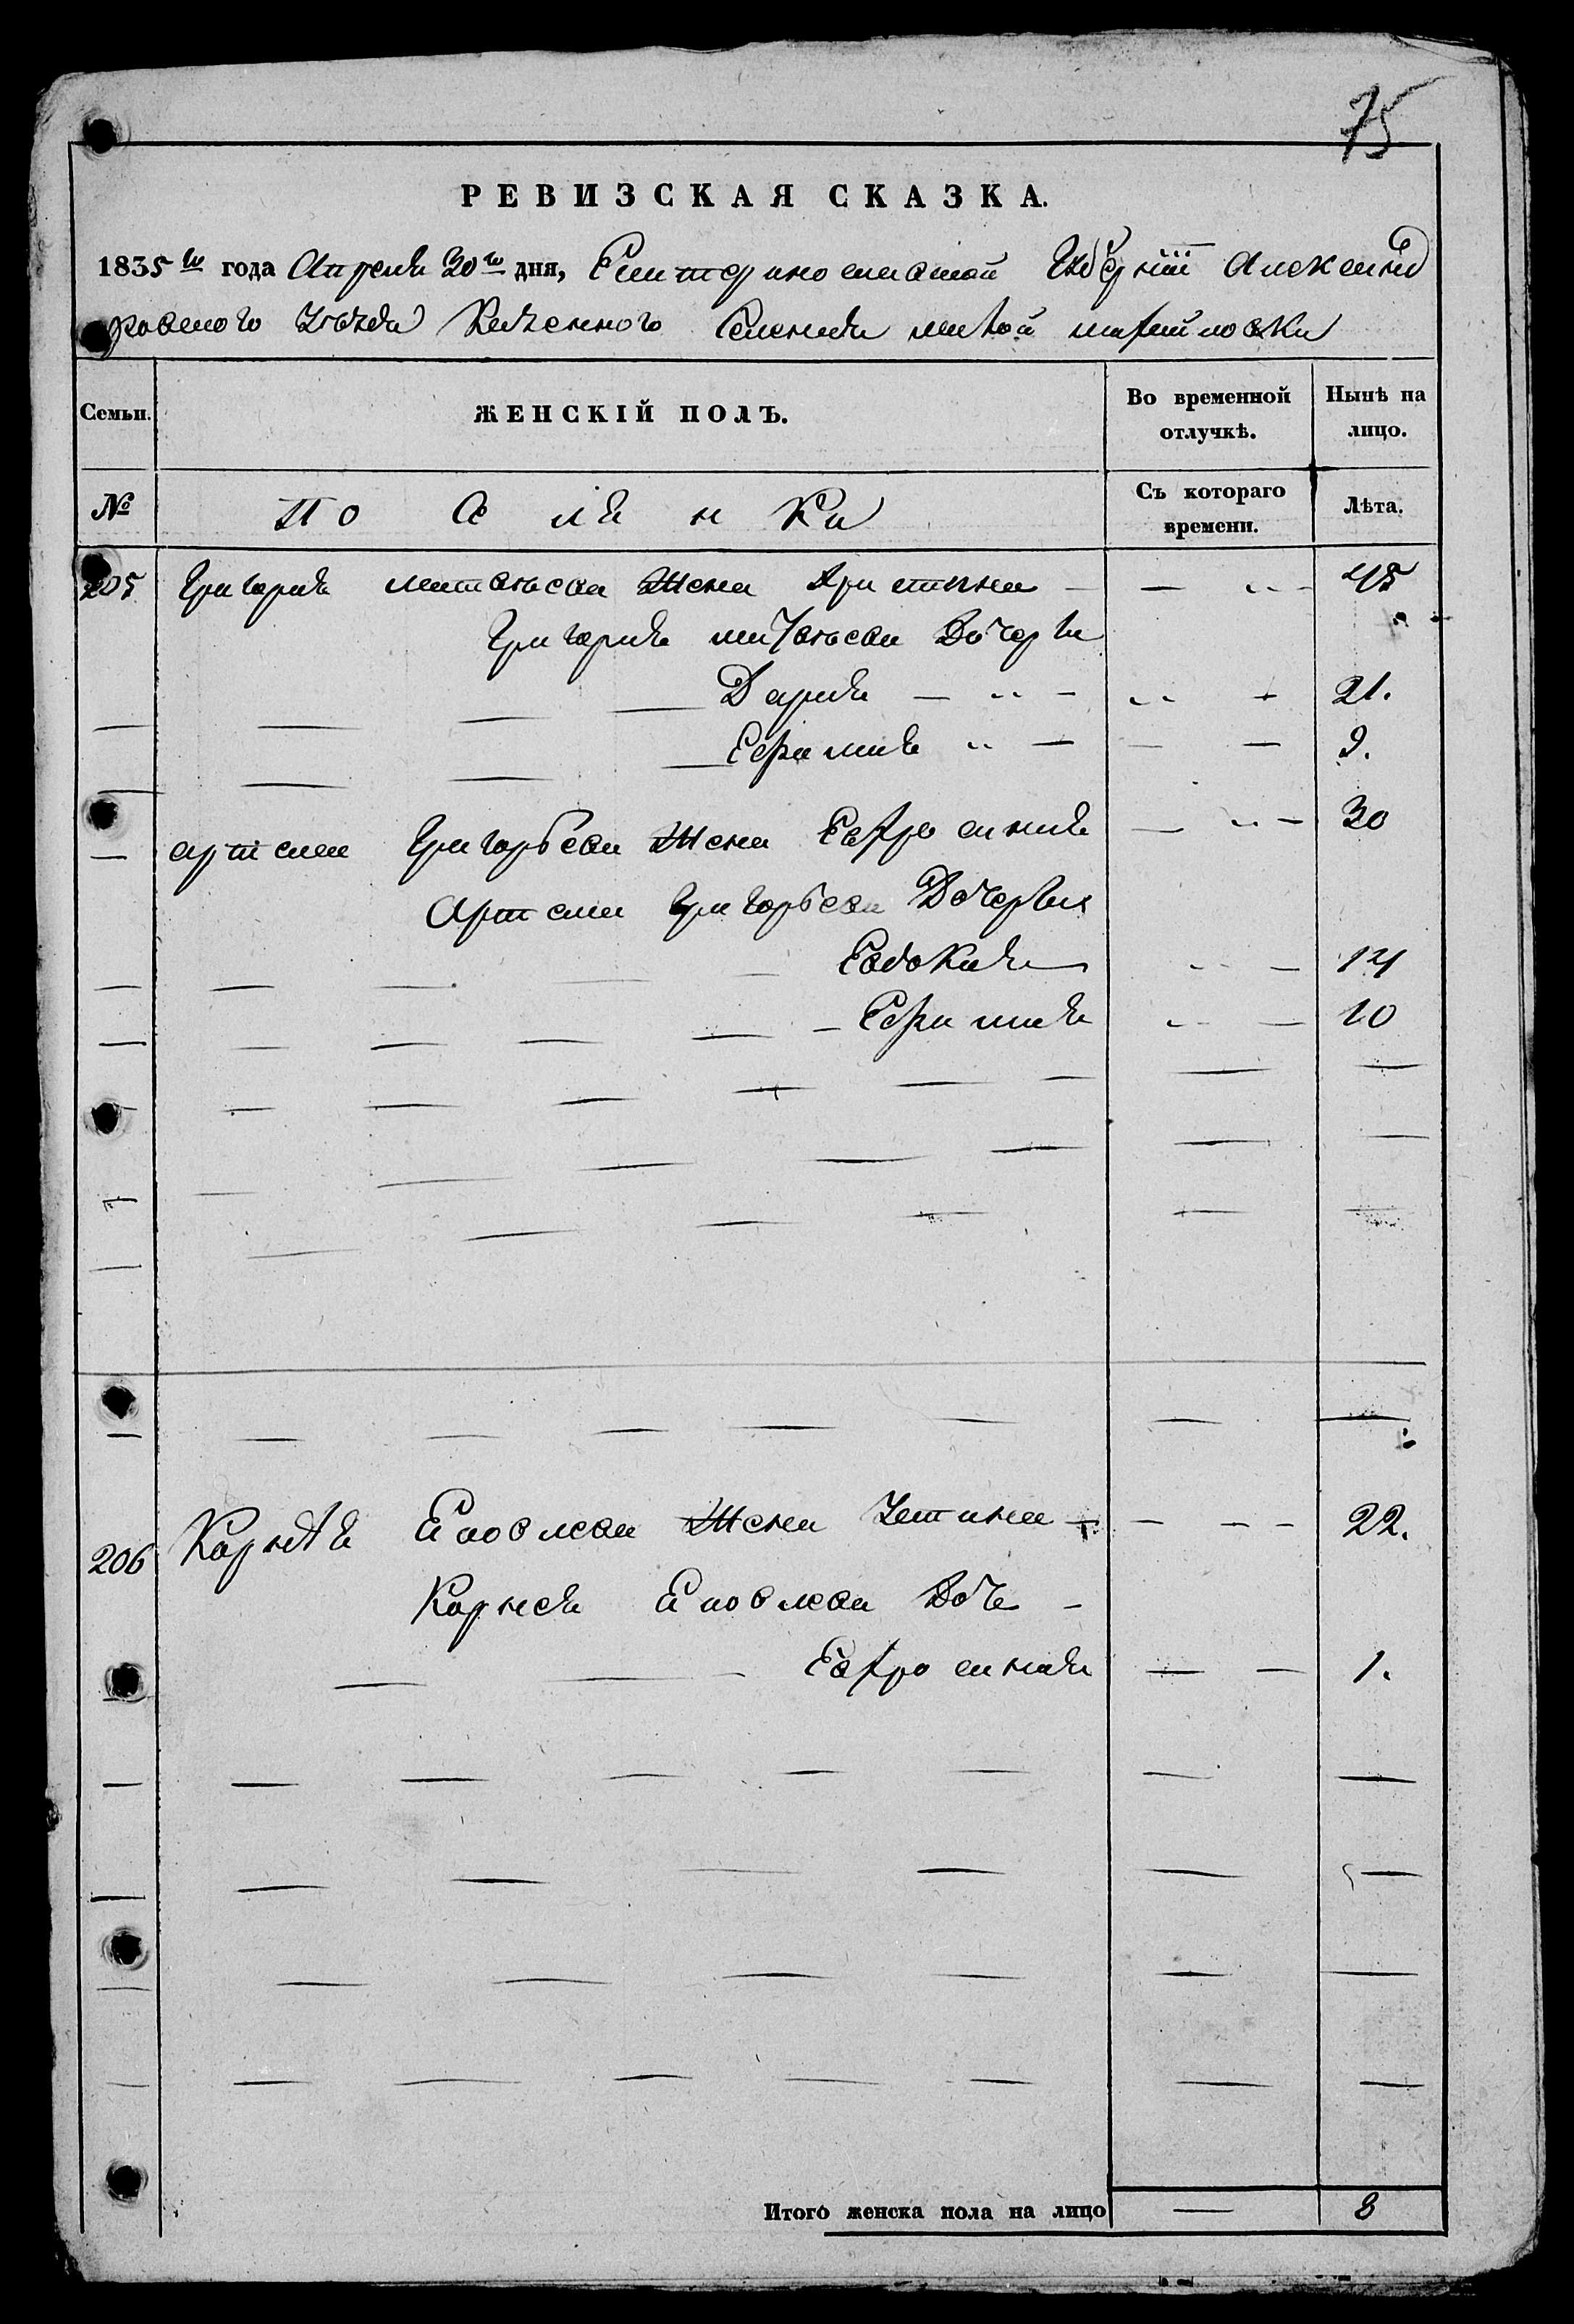 75
РЕВИЗСКАЯ СКАЗКА.
1835 го года Апреля 30 го дня, Екатеринославской Губернии Александ
ровского уезда Казенного Селения малой михайловки
Семьи.
ЖЕНСКІЙ ПОЛЪ.
Во временной отлучкѣ.
Нынѣ на лицо.
№
Съ котораго времени.
Лѣта.
205 Григория матвѣева Жена Христина 45
Григория матвѣева Дочери
Дария 21.
Ефимия 9.
артема Григорьева Жена Евфросиния 30
Артема Григорьева Дочери
Евдокия 14
Ефимия 10
206 Корнея Жена Устина 22.
Корнея Дочь
Евфросиния 1.
Итого женска пола на лицо 8